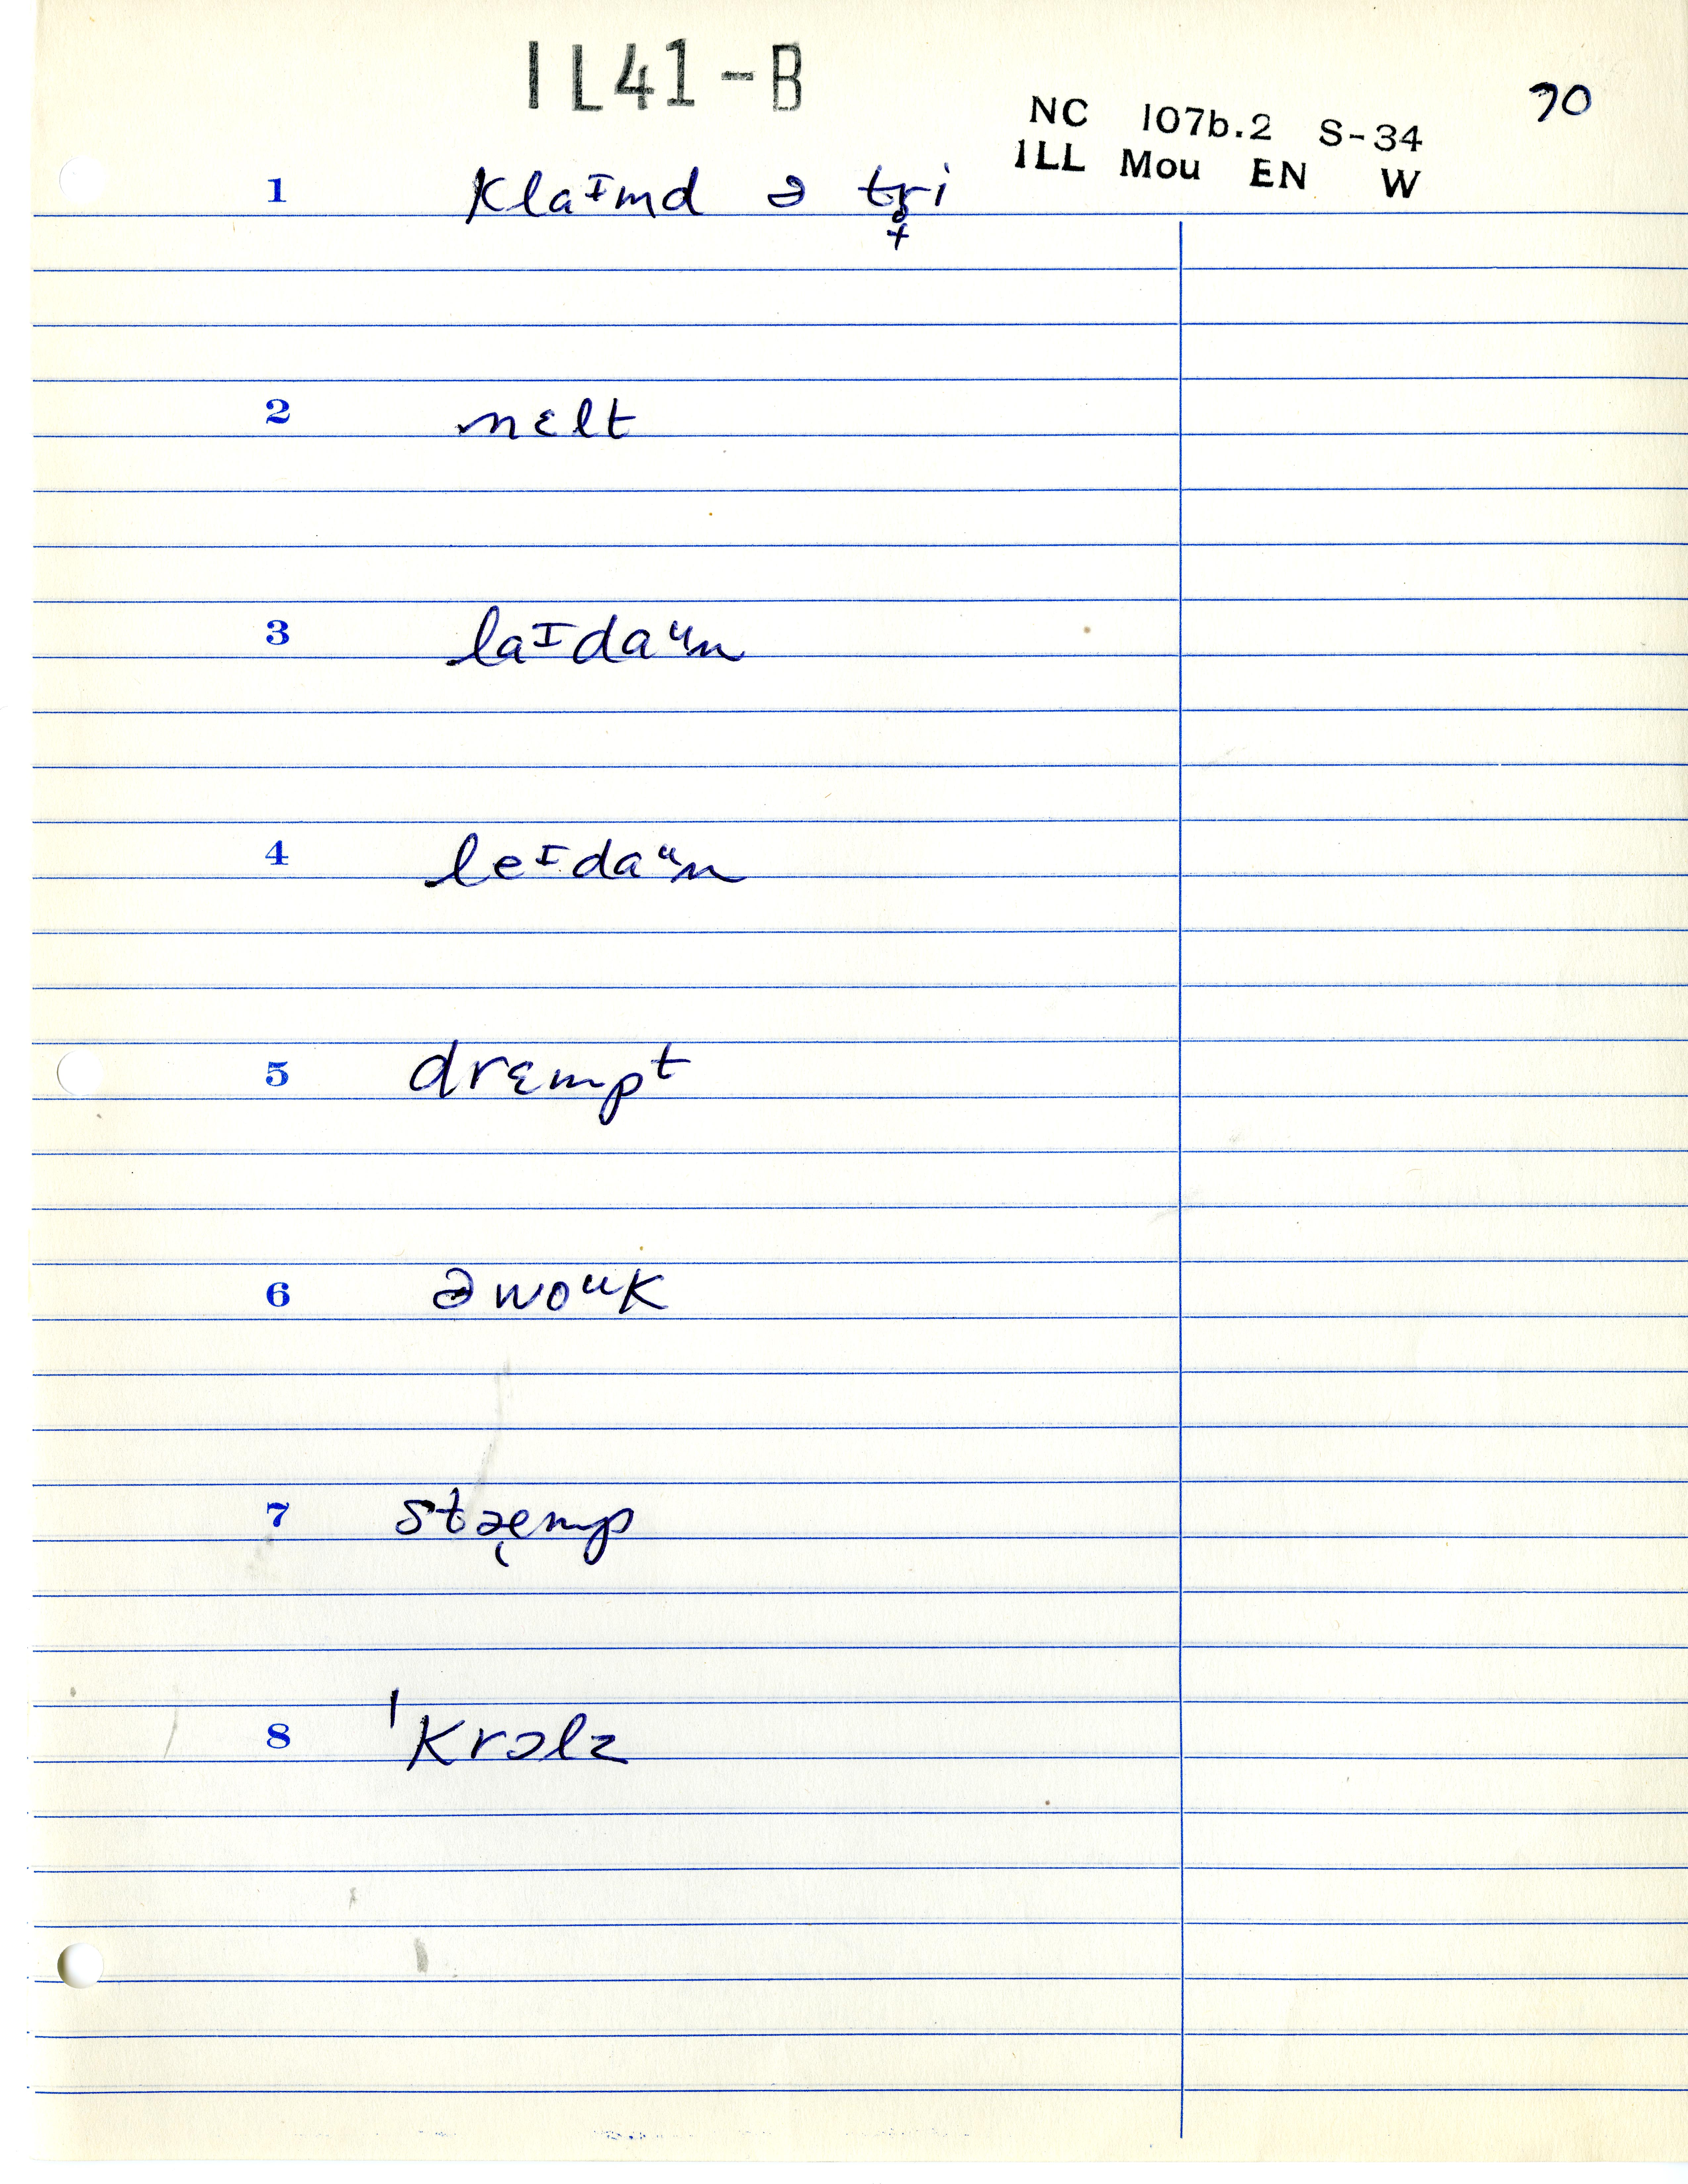 IL41-B
70
NC 107b.2 S-34
ILL Mou EN W
1 klaᴵmd ə tr̥i
2 nɛlt
3 laᴵdaᵘn
4 leᴵdaᵘn
5 drɛmpt
6 əwoᵘk
7 stæmp
8 ˈkrɔlz